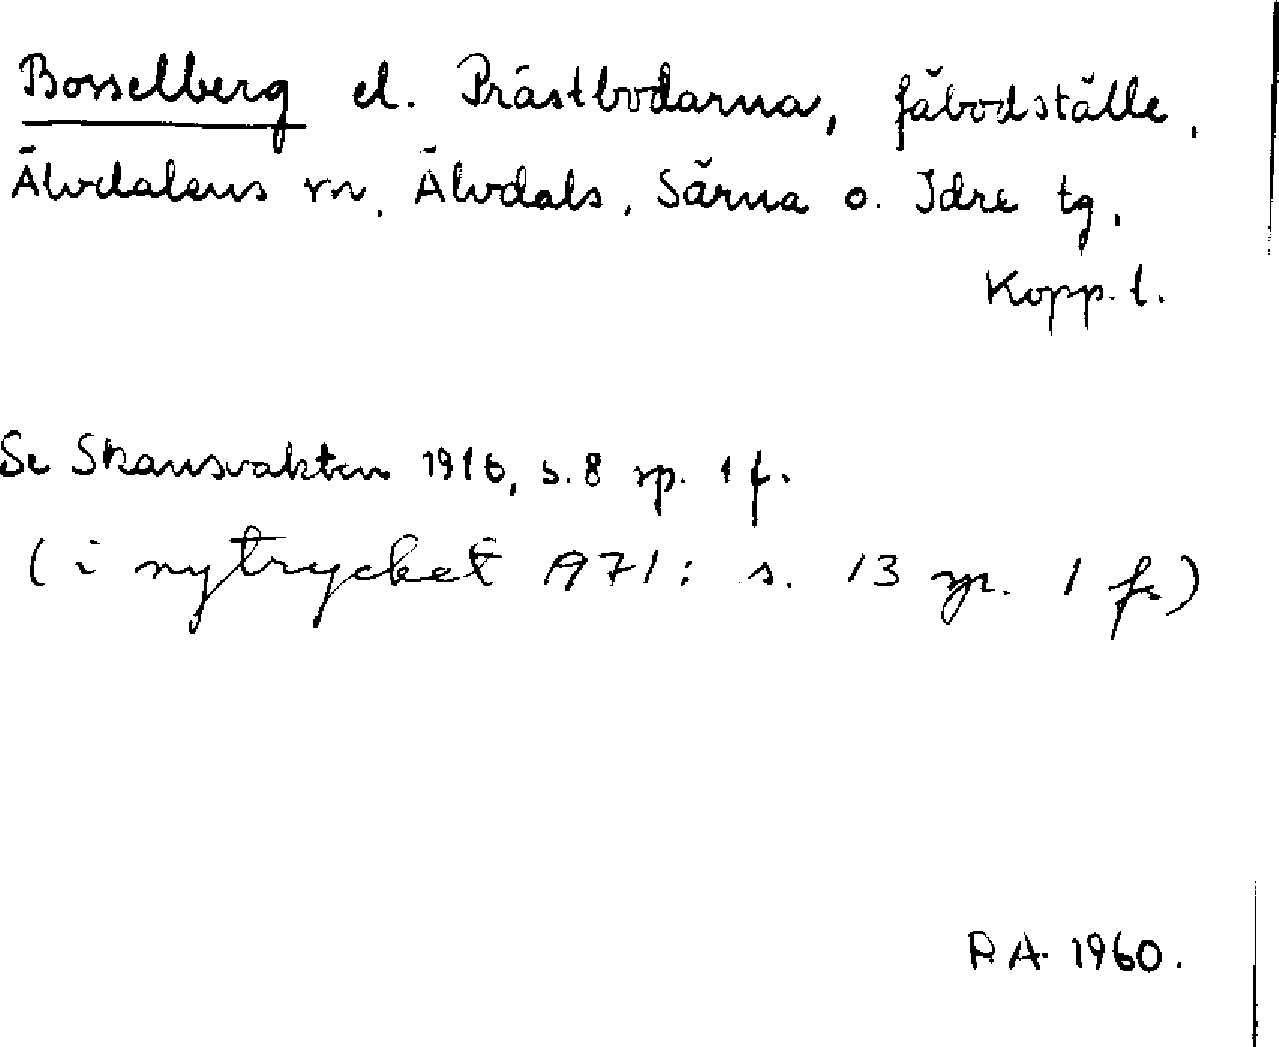 Bosselberg el. Prästbodarna, fäbodställe,
Älvdalens sn, Älvdals, Särna o. Idre tg,
Kopp. l.
Se Skansvakten 1916, s. 8 sp. 1 f.
(i nytrycket 1971: s. 13 sp. 1 f.)
R.A. 1960.